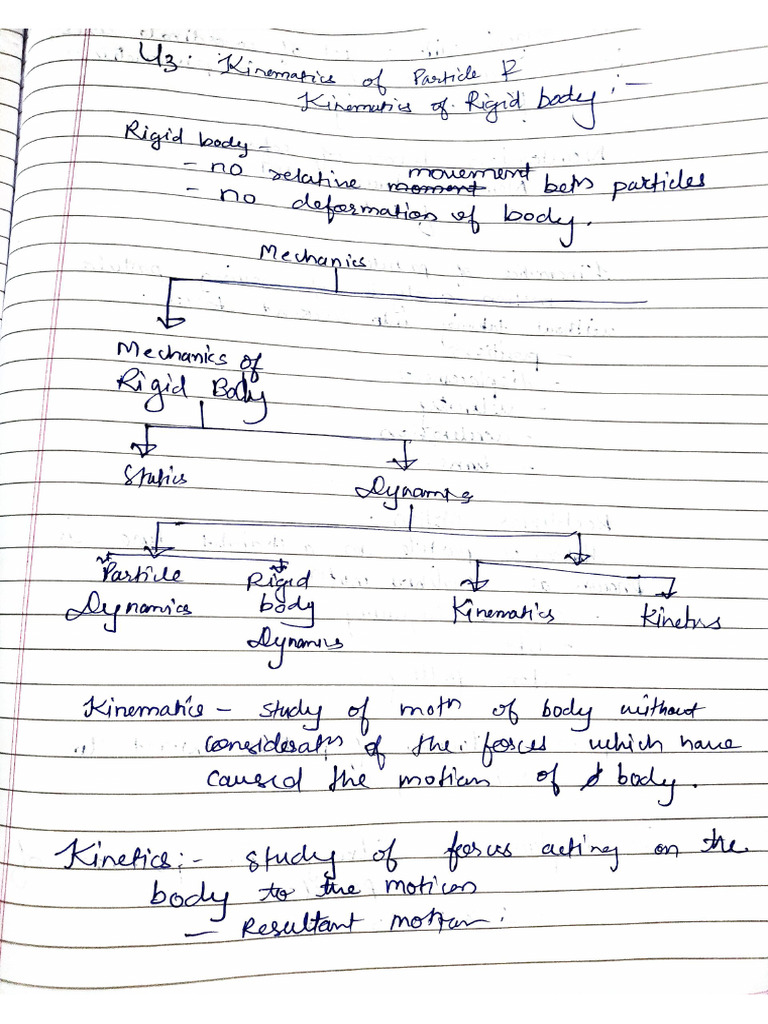 U3: Kinematics of Particle &
Kinematics of Rigid body :-
Rigid body -
- no relative moment movement betn particles
- no deformation of body.
Mechanics
Mechanics of
Rigid Body
Statics
Dynamics
Particle
Dynamics
Rigid
body
Dynamics
Kinematics
Kinetics
Kinematics - study of motn of body without
consideratn of the forces which have
caused the motion of body.
Kinetics:- study of forces acting on the
body to the motion
- Resultant motion.